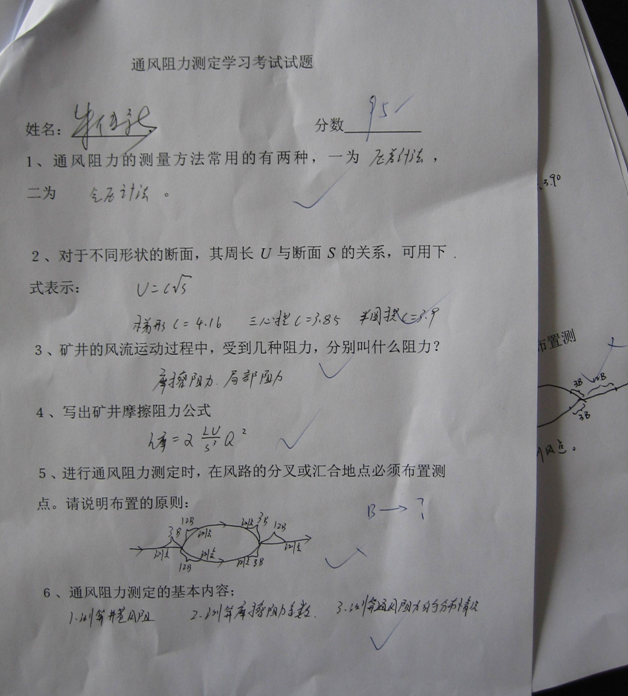 通风阻力测定学习考试试题
姓名: 分数 95
1、通风阻力的测量方法常用的有两种，一为 压差计法，
二为 气压计法。
2、对于不同形状的断面，其周长 U 与断面 S 的关系，可用下
式表示: U=C√S
梯形C=4.16 三心拱C=3.85 半圆拱C=3.9
3、矿井的风流运动过程中，受到几种阻力，分别叫什么阻力?
摩擦阻力.局部阻力
4、写出矿井摩擦阻力公式
h摩=α LU/S³ Q²
5、进行通风阻力测定时，在风路的分叉或汇合地点必须布置测
点。请说明布置的原则:
B→?
3B 12B 3B 12B
测点 测点 测点 测点 测点 测点
12B 3B
6、通风阻力测定的基本内容:
1.测算井巷风阻 2.测算摩擦阻力系数. 3.测算通风阻力的分布情况
3.90
布置测
3B 12B
3B
风点。